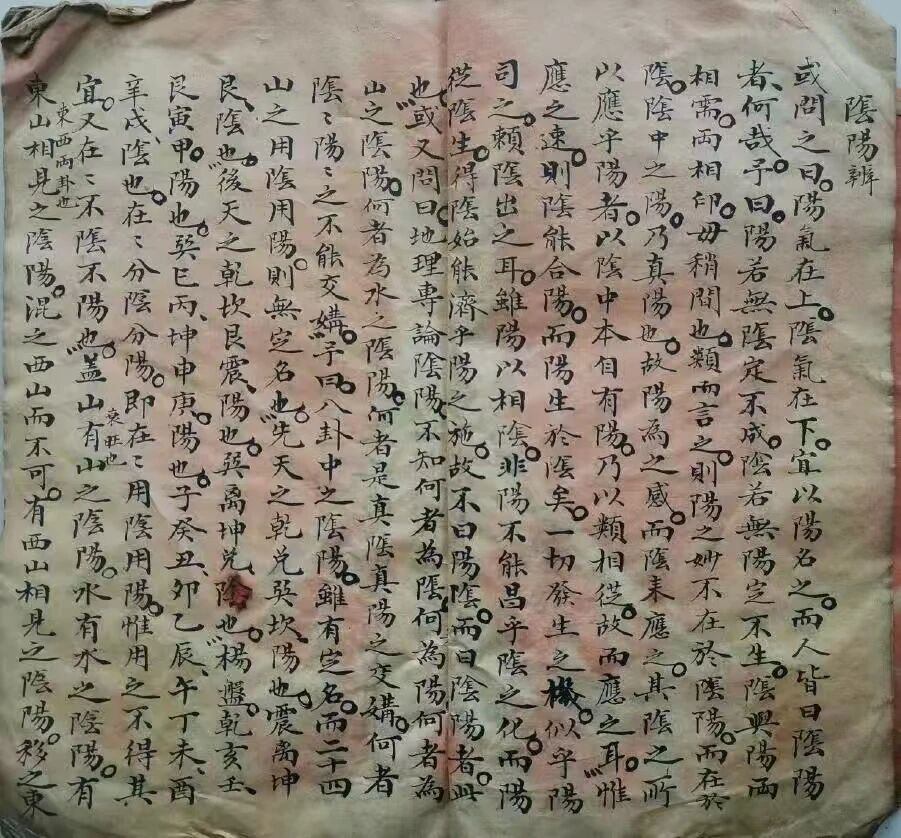 陰陽辨
或問之曰陽氣在上陰氣在下宜以陽名之而人皆曰陰陽
者何哉子曰陽若無陰定不成陰若無陽定不生陰與陽兩
相需兩相印毋稍間也類而言之則陽之妙不在於陽而在於
陰陰中之陽乃真陽也故陽為之感而陰來應之其陰之所
以應乎陽者以陰中本自有陽乃以類相從故而應之耳惟
應之速則陰能合陽而陽生於陰矣一切發生之機似乎陽
司之賴陰出之耳雖陽以相陰非陽不能昌乎陰之化而陽
從陰生得陰始能濟乎陽之施故不曰陽陰而曰陰陽者此
也或又問曰地理專論陰陽不知何者為陰何為陽何者為
山之陰陽何者為水之陰陽何者是真陰真陽之交媾何者
陰〻陽〻之不能交媾子曰八卦中之陰陽雖有定名而二十四
山之用陰用陽則無定名也先天之乾兌巽坎陽也震離坤
艮陰也後天之乾坎艮震陽也巽離坤兌陰也楊盤乾亥壬
艮寅甲陽也巽巳丙坤申庚陽也子癸丑卯乙辰午丁未酉
辛戌陰也在〻分陰分陽即在〻用陰用陽惟用之不得其
宜又在〻不陰不陽也蓋山有山之陰陽水有水之陰陽有
東西兩卦也
東山相見之陰陽混之西山而不可有西山相見之陰陽移之東